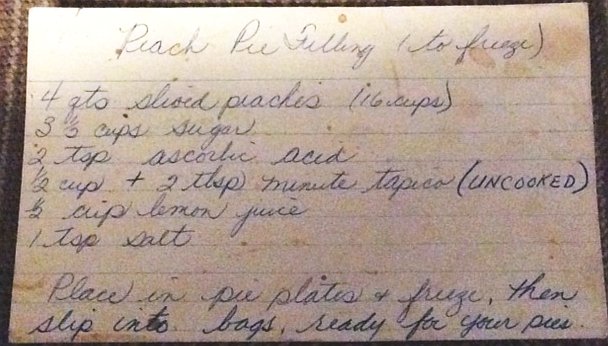 Peach Pie Filling (to freeze)
4 qts sliced peaches (16 cups)
3 ½ cups sugar
2 tsp ascorbic acid
½ cup + 2 tbsp minute tapico (UNCOOKED)
½ cup lemon juice
1 tsp salt
Place in pie plates + freeze, then
slip into bags, ready for your pies.